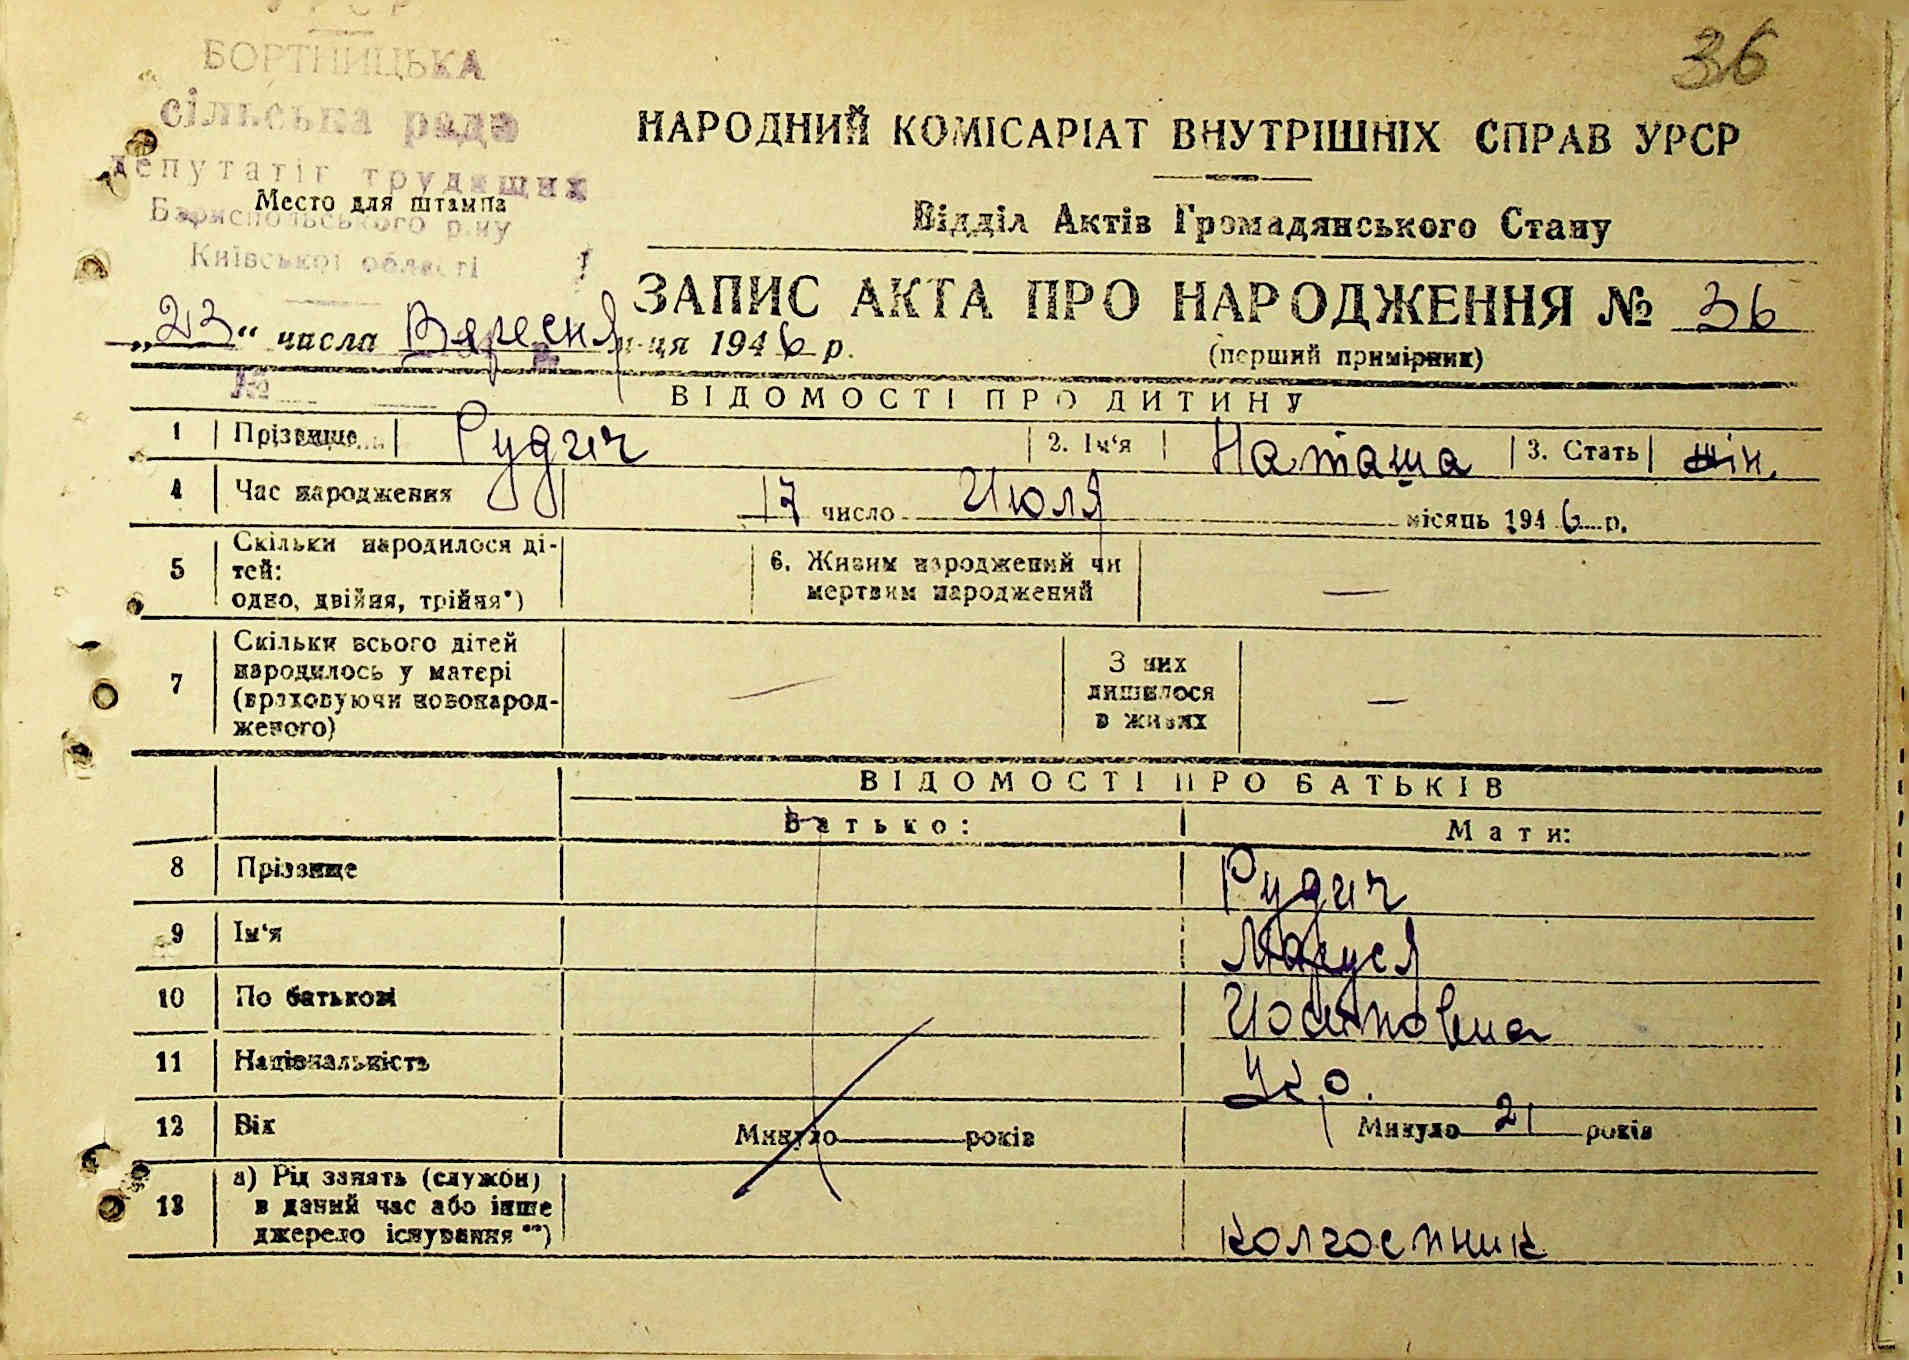 УРСР
36
БОРТНИЦЬКА
сільська рада
депутатів трудящих
Місто для штампа
Бориспольського р-ну
Київської області
НАРОДНИЙ КОМІСАРІАТ ВНУТРІШНІХ СПРАВ УРСР
Відділ Актів Громадянського Стану
ЗАПИС АКТА ПРО НАРОДЖЕННЯ № 36
„23“ числа Вересня м-ця 1946 р.
(перший примірник)
№
ВІДОМОСТІ ПРО ДИТИНУ
1 Прізвище Рудич 2. Ім‘я Наташа 3. Стать жін.
4 Час народження 17 число Июля місяць 1946 р.
5 Скільки народилося ді-
тей:
одно, двійня, трійня*)
6. Живим народжений чи
мертвим народжений —
7 Скільки всього дітей
народилось у матері
(враховуючи новонарод-
женого) —
З них
лишилося
в живих —
ВІДОМОСТІ ПРО БАТЬКІВ
Батько: Мати:
8 Прізвище Рудич
9 Ім‘я Маруся
10 По батькові Йосиповна
11 Національність Укр.
12 Вік Минуло — років Минуло 21 років
13 а) Рід занять (служби)
в даний час або інше
джерело існування **)
колгоспник